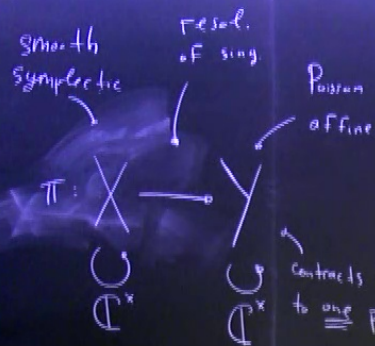 smooth
symplectic
resol.
of sing.
Poisson
affine
π : X → Y
ℂ* ℂ*
contracts
to one